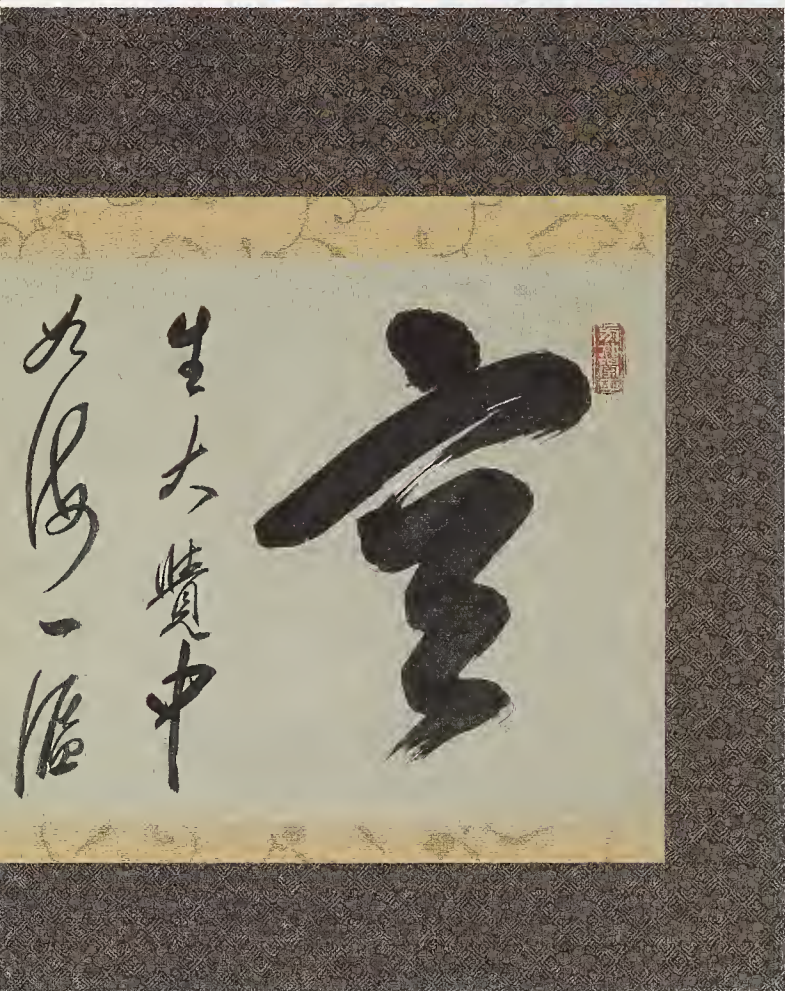 空
生大覺中
如海一漚